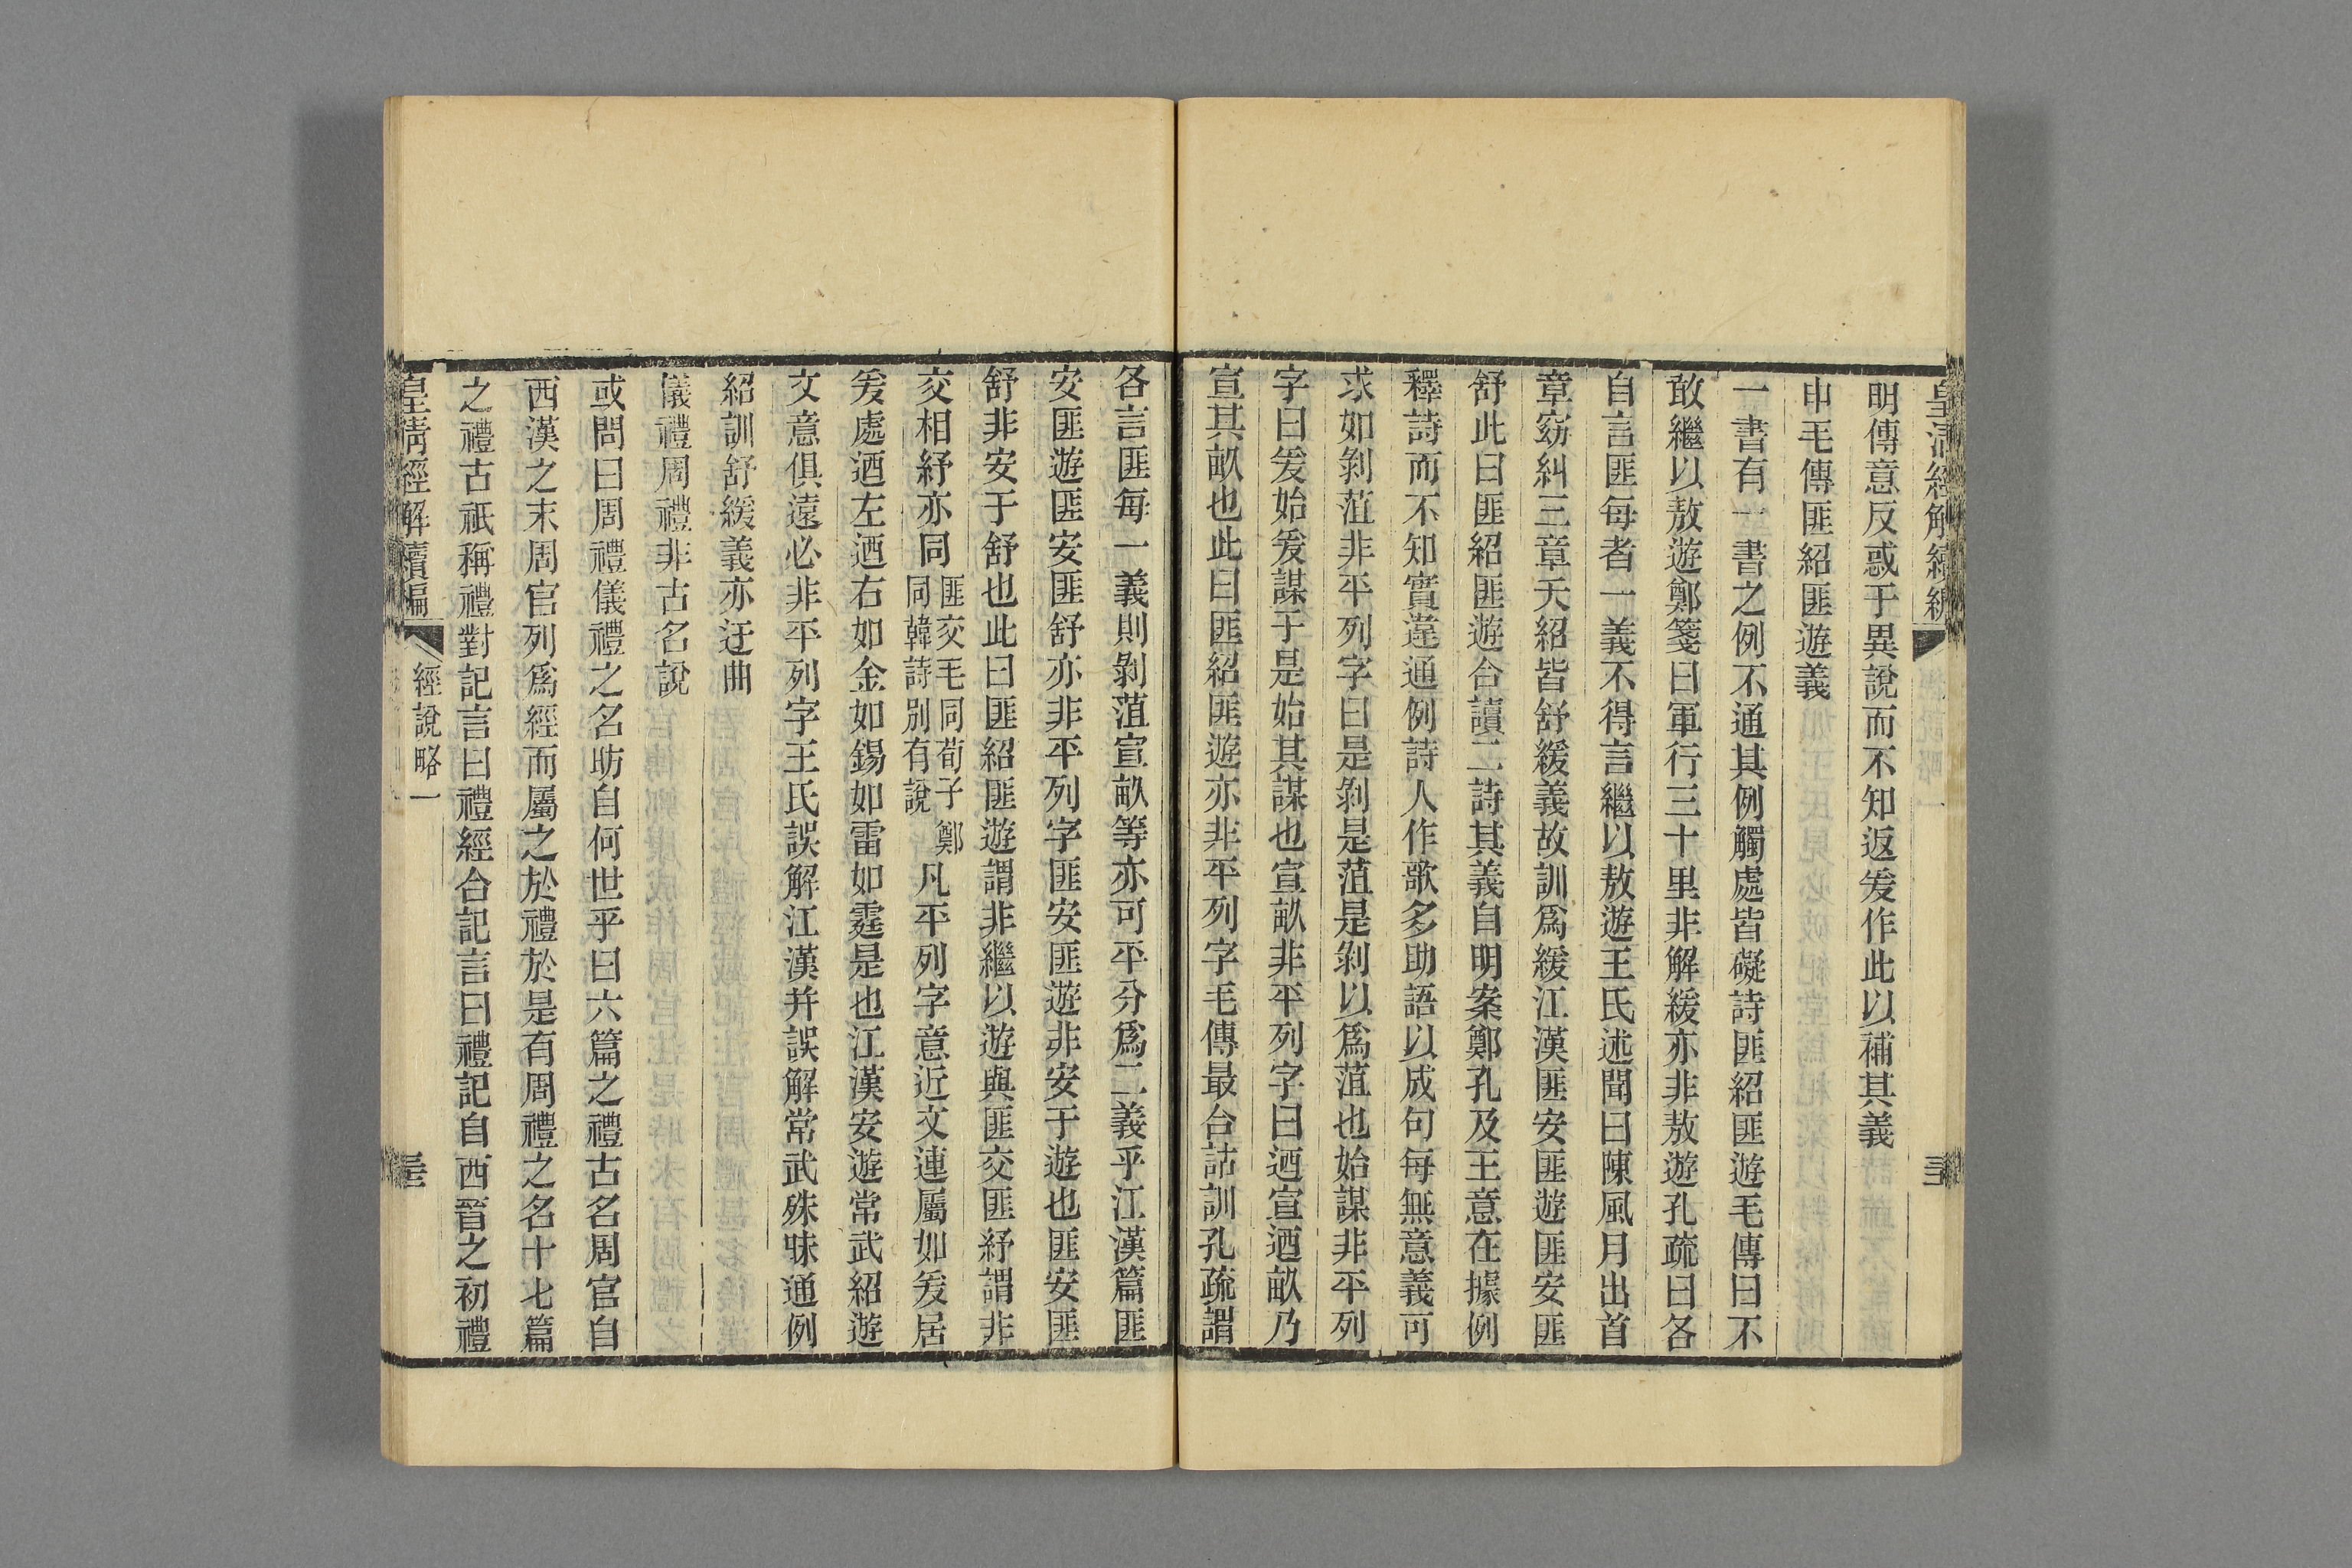 皇清經解續編
明傳意反惑于異說而不知返爰作此以補其義
申毛傳匪紹匪遊義
一書有一書之例不通其例觸處皆礙詩匪紹匪遊毛傳曰不
敢繼以敖遊鄭箋曰軍行三十里非解緩亦非敖遊孔疏曰各
自言匪每者一義不得言繼以敖遊王氏述聞曰陳風月出首
章窈糾三章夭紹皆舒緩義故訓爲緩江漢匪安匪遊匪安匪
舒此曰匪紹匪遊合讀二詩其義自明案鄭孔及王意在據例
釋詩而不知實違通例詩人作歌多助語以成句每無意義可
求如剝菹非平列字曰是剝是菹是剝以爲菹也始謀非平列
字曰爰始爰謀于是始其謀也宣畝非平列字曰迺宣迺畝乃
宣其畝也此曰匪紹匪遊亦非平列字毛傳最合詁訓孔疏謂
各言匪每一義則剝菹宣畝等亦可平分爲二義乎江漢篇匪
安匪遊匪安匪舒亦非平列字匪安匪遊非安于遊也匪安匪
舒非安于舒也此曰匪紹匪遊謂非繼以遊與匪交匪紓謂非
交相紓亦同匪交毛同荀子鄭同韓詩別有說凡平列字意近文連屬如爰居
爰處迺左迺右如金如錫如雷如霆是也江漢安遊常武紹遊
文意俱遠必非平列字王氏誤解江漢并誤解常武殊昧通例
紹訓舒緩義亦迂曲
儀禮周禮非古名說
或問曰周禮儀禮之名昉自何世乎曰六篇之禮古名周官自
西漢之末周官列爲經而屬之於禮於是有周禮之名十七篇
之禮古祇稱禮對記言曰禮經合記言曰禮記自西晉之初禮
皇清經解續編 經說略一